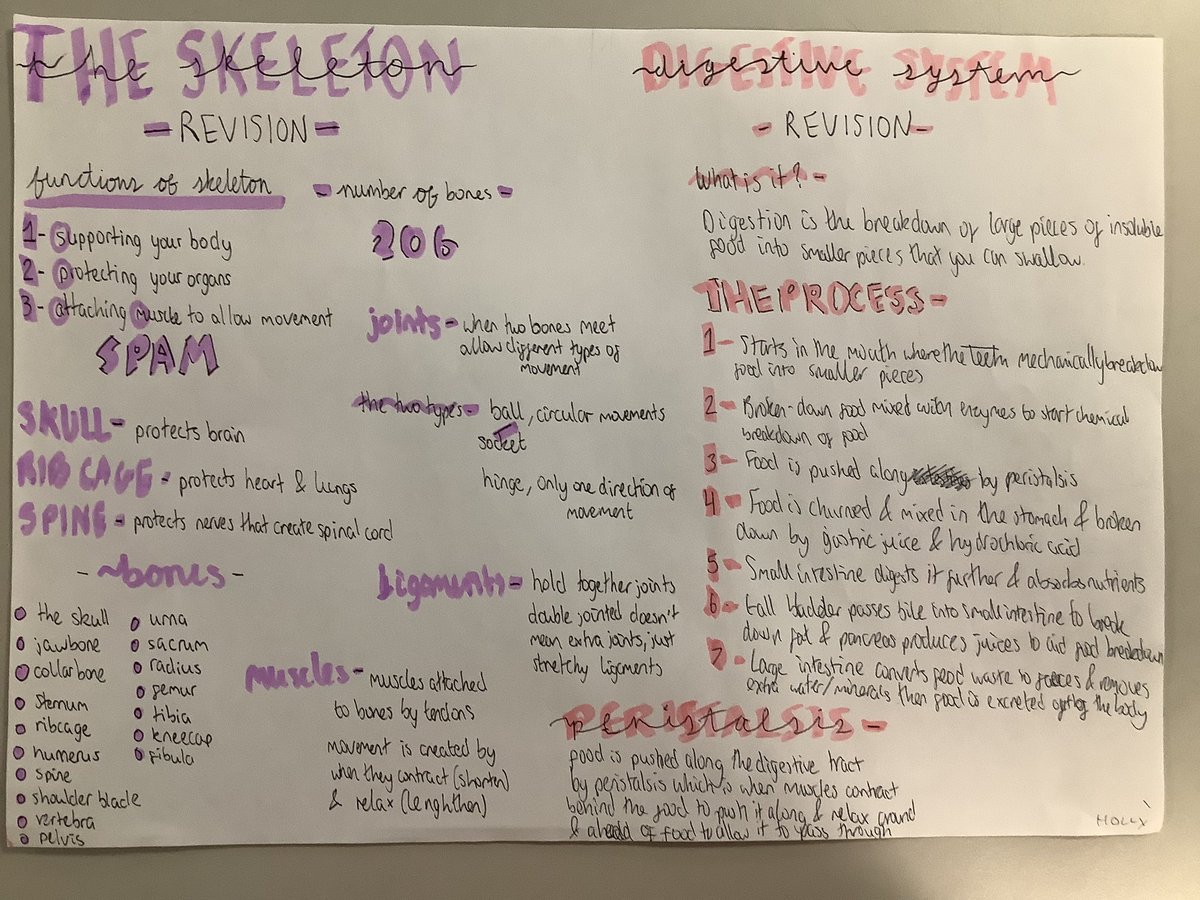 THE SKELETON
the skeleton
- REVISION -
functions of skeleton
1- supporting your body
2- protecting your organs
3- attaching muscle to allow movement
SPAM
SKULL- protects brain
RIB CAGE - protects heart & lungs
SPINE - protects nerves that create spinal cord
- ~bones -
the skull
jawbone
collar bone
sternum
ribcage
humerus
spine
shoulder blade
vertebra
pelvis
ulna
sacrum
radius
femur
tibia
kneecap
fibula
- number of bones -
206
joints - when two bones meet
allow different types of
movement
the two types - ball, circular movements
socket
hinge, only one direction of
movement
Ligaments - hold together joints
double jointed doesn't
mean extra joints, just
stretchy ligaments
muscles - muscles attached
to bones by tendons
movement is created by
when they contract (shorten)
& relax (lenghthen)
DIGESTIVE SYSTEM
digestive system
- REVISION -
What is it? -
Digestion is the breakdown of large pieces of insoluble
food into smaller pieces that you can swallow.
THE PROCESS -
1 - Starts in the mouth where the Teeth mechanically breakdown
food into smaller pieces
2 - Broken-down food mixed with enzymes to start chemical
breakdown of food
3 - Food is pushed along by peristalsis
4 - Food is churned & mixed in the stomach & broken
down by gastric juice & hydrochloric acid
5 - Small intestine digests it further & absorbs nutrients
6 - Gall bladder passes bile into small intestine to break
down fat & pancreas produces juices to aid food breakdown
7 - Large intestine converts food waste to faeces & removes
extra water/minerals then food is excreted the body
PERISTALSIS
peristalsis -
food is pushed along the digestive tract
by peristalsis which is when muscles contract
behind the food to push it along & relax around
& ahead of food to allow it to pass through
HOLLY